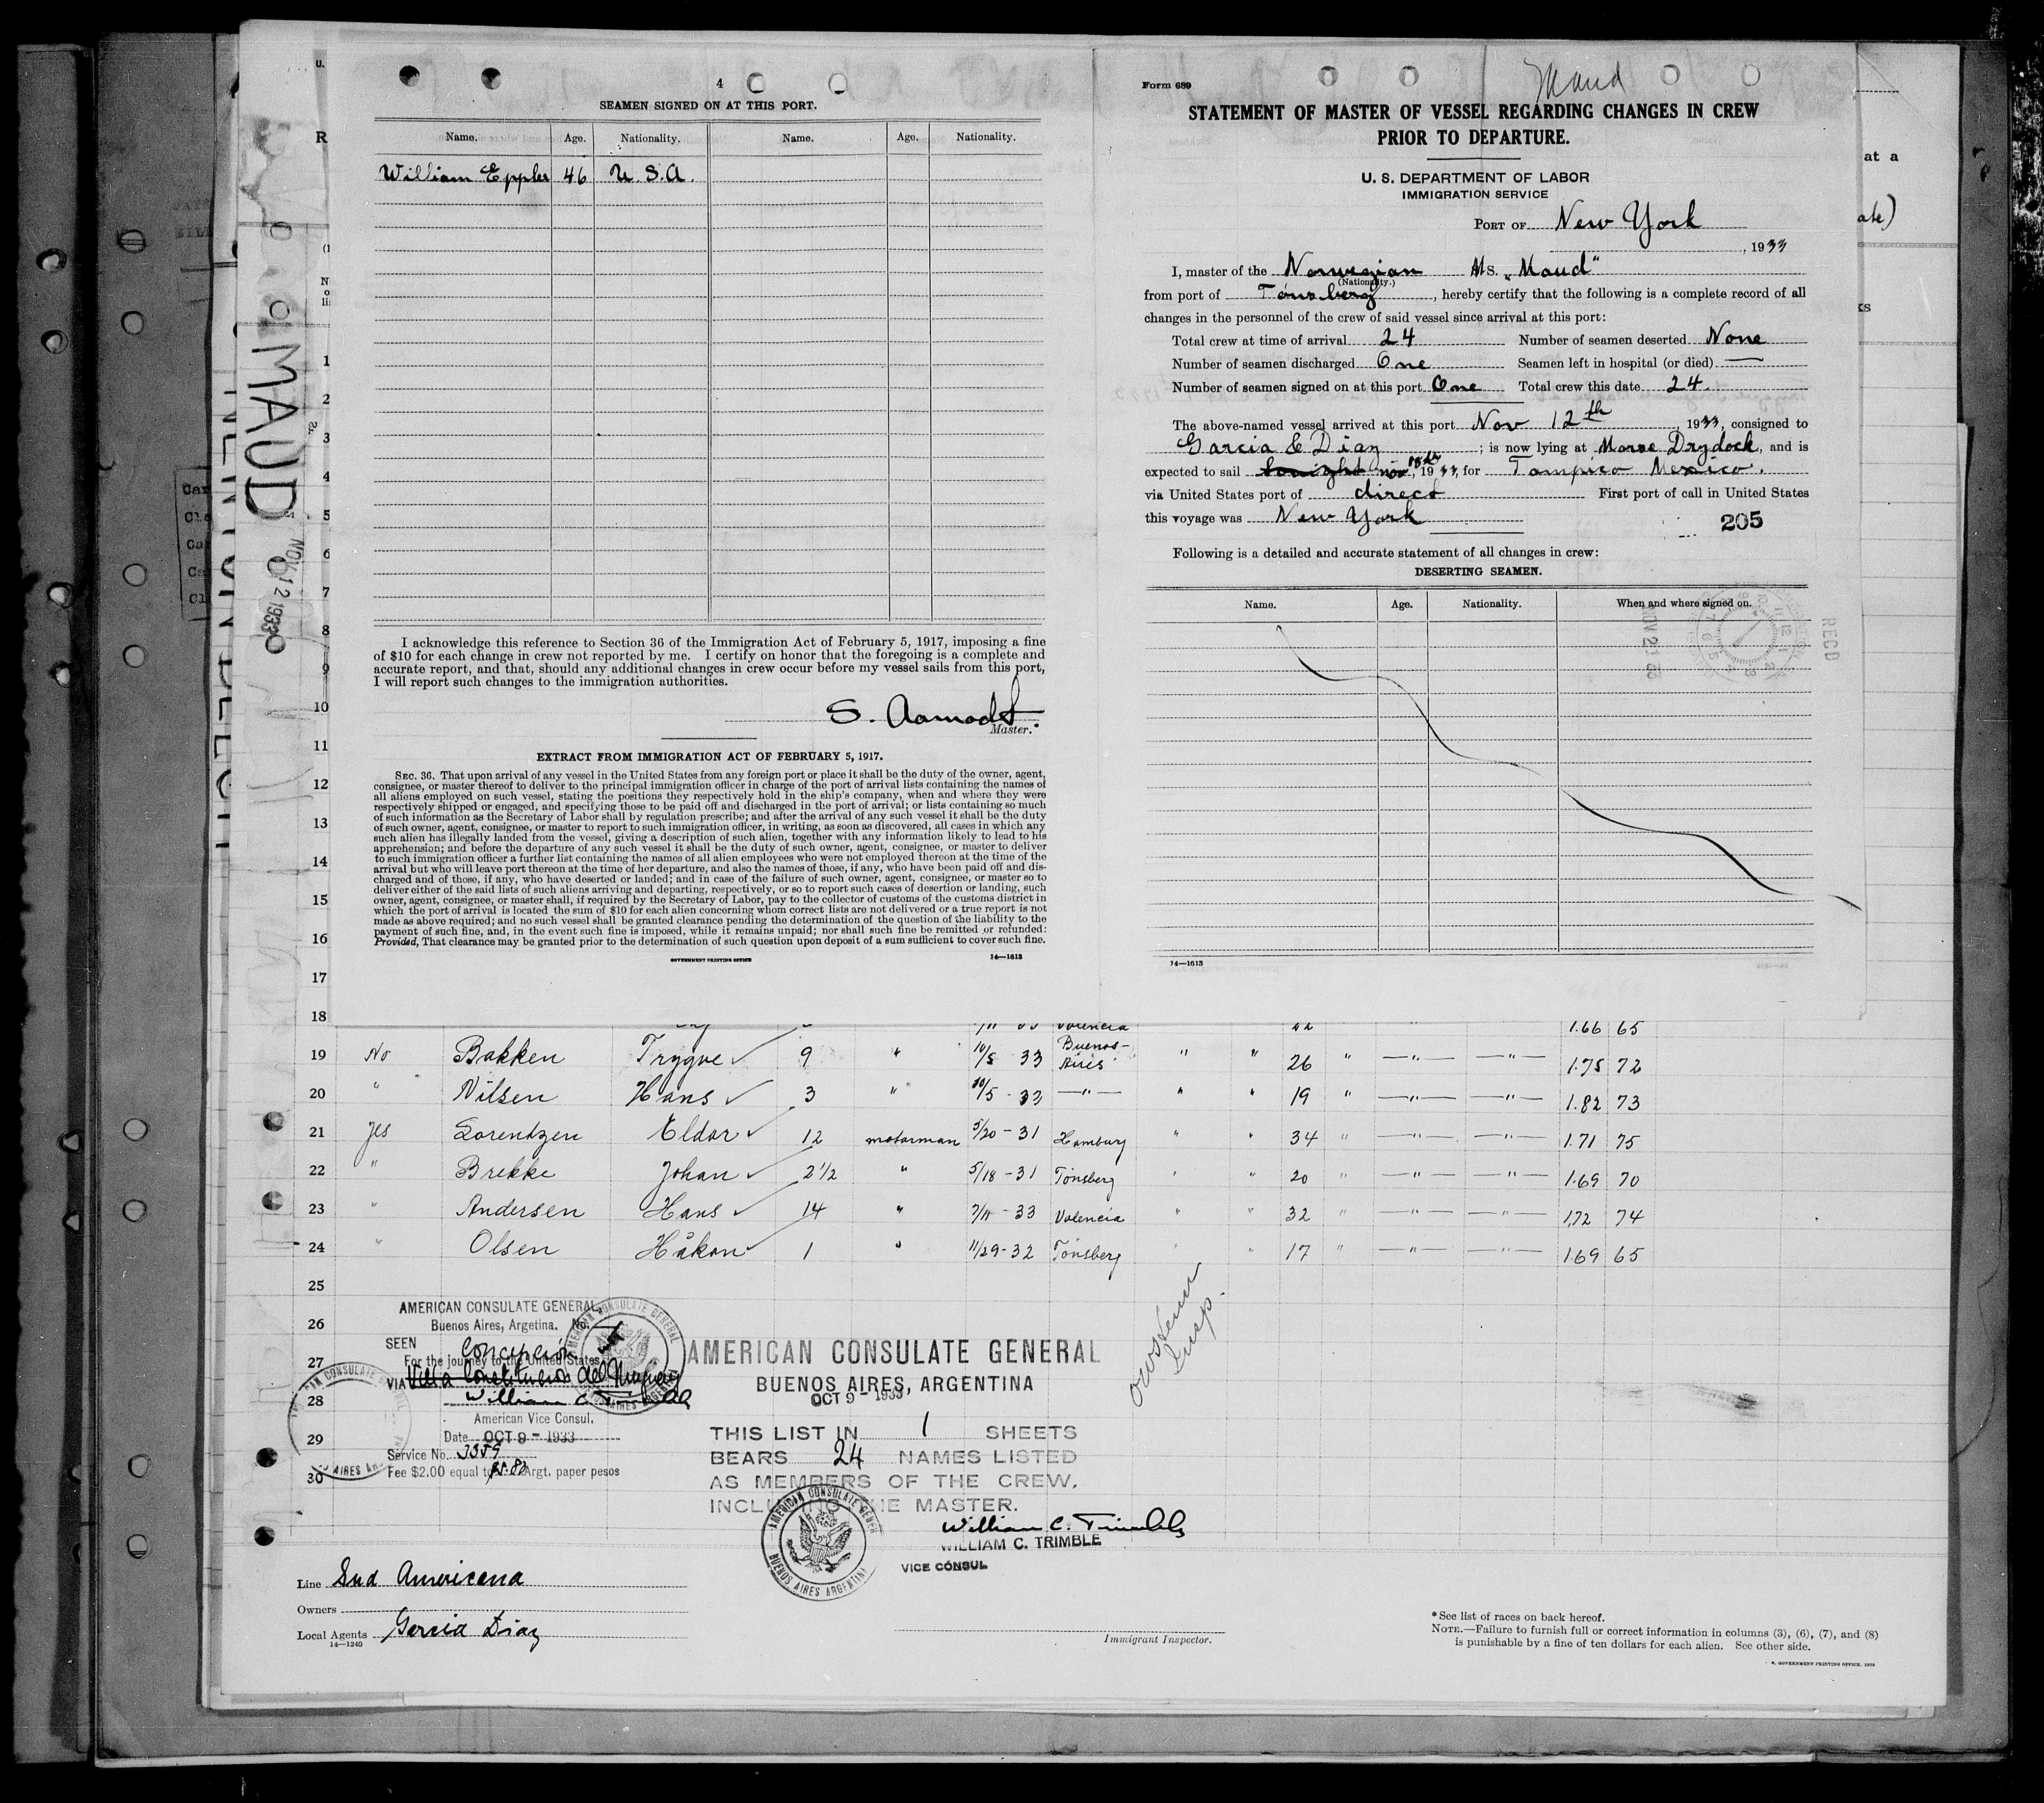 4
SEAMEN SIGNED ON AT THIS PORT.
Name. Age. Nationality. Name. Age. Nationality.
William Eppler 46 U.S.A.
I acknowledge this reference to Section 36 of the Immigration Act of February 5, 1917, imposing a fine
of $10 for each change in crew not reported by me. I certify on honor that the foregoing is a complete and
accurate report, and that, should any additional changes in crew occur before my vessel sails from this port,
I will report such changes to the immigration authorities.
S. Aamodt
Master.
EXTRACT FROM IMMIGRATION ACT OF FEBRUARY 5, 1917.
SEC. 36. That upon arrival of any vessel in the United States from any foreign port or place it shall be the duty of the owner, agent,
consignee, or master thereof to deliver to the principal immigration officer in charge of the port of arrival lists containing the names of
all aliens employed on such vessel, stating the positions they respectively hold in the ship's company, when and where they were
respectively shipped or engaged, and specifying those to be paid off and discharged in the port of arrival; or lists containing so much
of such information as the Secretary of Labor shall by regulation prescribe; and after the arrival of any such vessel it shall be the duty
of such owner, agent, consignee, or master to report to such immigration officer, in writing, as soon as discovered, all cases in which any
such alien has illegally landed from the vessel, giving a description of such alien, together with any information likely to lead to his
apprehension; and before the departure of any such vessel it shall be the duty of such owner, agent, consignee, or master to deliver
to such immigration officer a further list containing the names of all alien employees who were not employed thereon at the time of the
arrival but who will leave port thereon at the time of her departure, and also the names of those, if any, who have been paid off and dis-
charged and of those, if any, who have deserted or landed; and in case of the failure of such owner, agent, consignee, or master so to
deliver either of the said lists of such aliens arriving and departing, respectively, or so to report such cases of desertion or landing, such
owner, agent, consignee, or master shall, if required by the Secretary of Labor, pay to the collector of customs of the customs district in
which the port of arrival is located the sum of $10 for each alien concerning whom correct lists are not delivered or a true report is not
made as above required; and no such vessel shall be granted clearance pending the determination of the question of the liability to the
payment of such fine, and, in the event such fine is imposed, while it remains unpaid; nor shall such fine be remitted or refunded:
Provided, That clearance may be granted prior to the determination of such question upon deposit of a sum sufficient to cover such fine.
GOVERNMENT PRINTING OFFICE 14—1613
Maud
Form 689
STATEMENT OF MASTER OF VESSEL REGARDING CHANGES IN CREW
PRIOR TO DEPARTURE.
U. S. DEPARTMENT OF LABOR
IMMIGRATION SERVICE
PORT OF New York
, 1933
I, master of the Norwegian MS. "Maud"
(Nationality.)
from port of Tönsberg, hereby certify that the following is a complete record of all
changes in the personnel of the crew of said vessel since arrival at this port:
Total crew at time of arrival 24 Number of seamen deserted None
Number of seamen discharged One Seamen left in hospital (or died) —
Number of seamen signed on at this port One Total crew this date 24
The above-named vessel arrived at this port Nov 12th, 1933, consigned to
Garcia & Diaz; is now lying at Morse Drydock, and is
expected to sail tonight Nov 18th, 1933, for Tampico Mexico.
via United States port of direct First port of call in United States
this voyage was New York
205
Following is a detailed and accurate statement of all changes in crew:
DESERTING SEAMEN.
Name. Age. Nationality. When and where signed on.
RECD
NOV 21 33
14—1613
MAUD
NOV 12 1933
at a
1
2
3
4
5
6
7
8
9
10
11
12
13
14
15
16
17
18 Valencia 22 " 1.66 65
19 No Bakken Trygve 9 " 10/5 33 Buenos-Aires " " 26 " —"— —"— 1.75 72
20 " Nilsen Hans 3 " 10/5 - 33 —"— " " 19 " —"— —"— 1.82 73
21 Yes Lorentzen Eldor 12 motorman 5/20 - 31 Hamburg " " 34 " —"— —"— 1.71 75
22 " Brekke Johan 2 1/2 " 5/18 - 31 Tönsberg " " 20 " —"— —"— 1.69 70
23 " Andersen Hans 14 " 7/11 - 33 Valencia " " 32 " —"— —"— 1.72 74
24 " Olsen Håkon 1 " 11/29 - 32 Tönsberg " " 17 " —"— —"— 1.69 65
25
26
27
28
29
30
AMERICAN CONSULATE GENERAL
Buenos Aires, Argetina. No.
SEEN
Concepcion
For the journey to the United States
VIA Villa Constitucion del Uruguay
William C. Trimble
American Vice Consul.
Date OCT 9 - 1933
Service No. 3359
Fee $2.00 equal to Argt. paper pesos
AMERICAN CONSULATE GENERAL
BUENOS AIRES, ARGENTINA
OCT 9 - 1933
THIS LIST IN 1 SHEETS
BEARS 24 NAMES LISTED
AS MEMBERS OF THE CREW,
INCLUDING THE MASTER.
William C. Trimble
WILLIAM C. TRIMBLE
VICE CONSUL
AMERICAN CONSULATE GENERAL
BUENOS AIRES ARGENTINA
Insp.
Line Sud Americana
Owners
Local Agents Garcia Diaz
14—1240
Immigrant Inspector.
*See list of races on back hereof.
NOTE.—Failure to furnish full or correct information in columns (3), (6), (7), and (8)
is punishable by a fine of ten dollars for each alien. See other side.